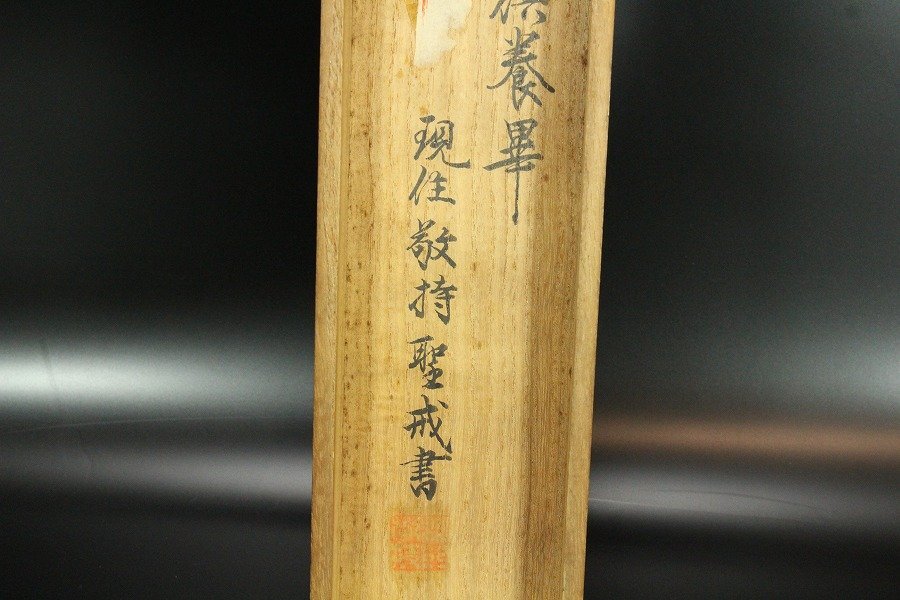 供養畢
現住敬持聖戒書